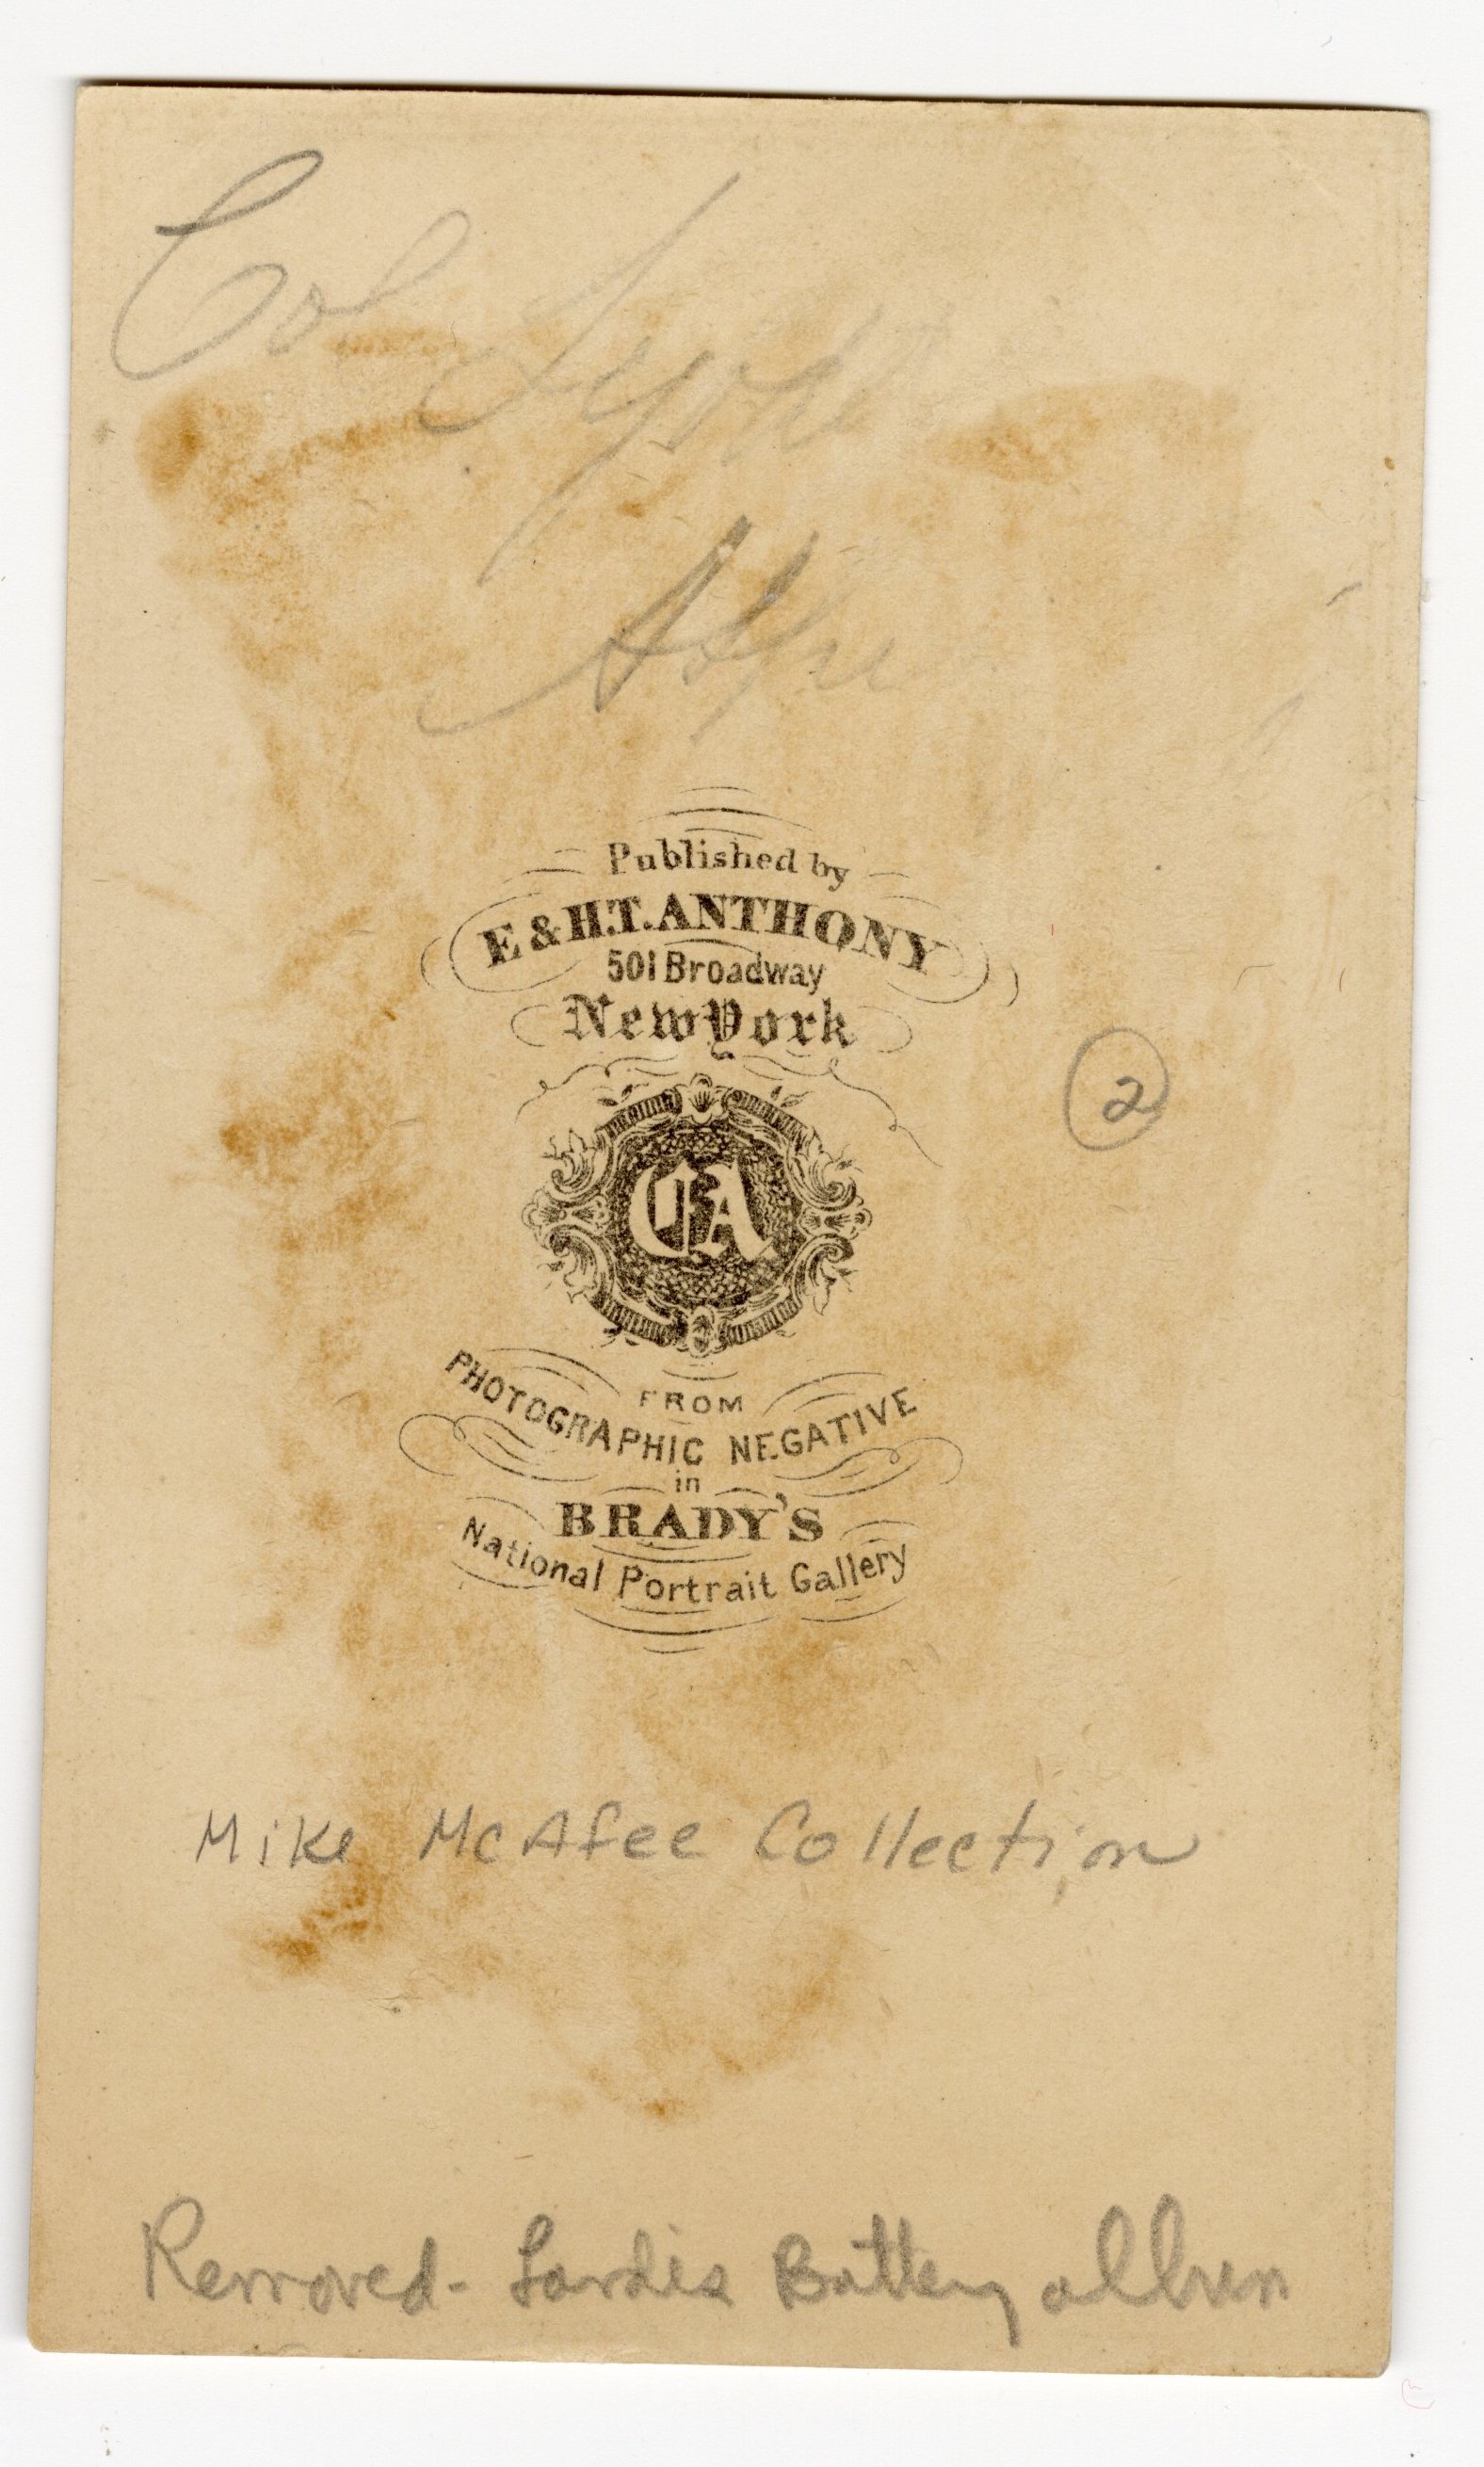 Col
Published by
E & H.T. ANTHONY
501 Broadway
New York
2
FROM
PHOTOGRAPHIC NEGATIVE
in
BRADY'S
National Portrait Gallery
Mike McAfee Collection
Removed - Landis Battery album